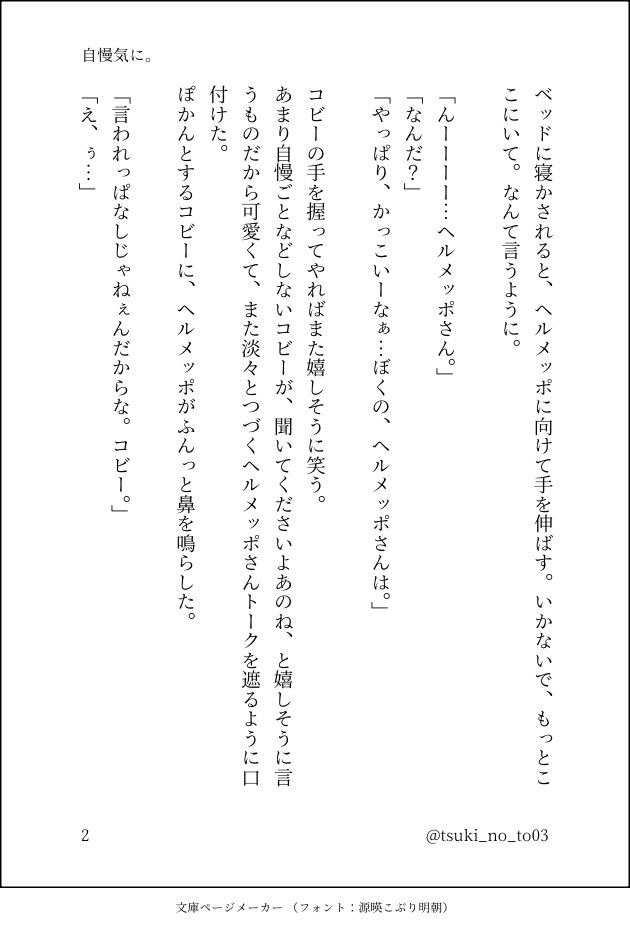 自慢気に。
ベッドに寝かされると、ヘルメッポに向けて手を伸ばす。いかないで、もっとこ
こにいて。なんて言うように。
「んーーーー…ヘルメッポさん。」
「なんだ？」
「やっぱり、かっこいーなぁ…ぼくの、ヘルメッポさんは。」
コビーの手を握ってやればまた嬉しそうに笑う。
あまり自慢ごとなどしないコビーが、聞いてくださいよあのね、と嬉しそうに言
うものだから可愛くて、また淡々とつづくヘルメッポさんトークを遮るように口
付けた。
ぽかんとするコビーに、ヘルメッポがふんっと鼻を鳴らした。
「言われっぱなしじゃねぇんだからな。コビー。」
「え、ぅ…」
2
@tsuki_no_to03
文庫ページメーカー（フォント：源暎こぶり明朝）